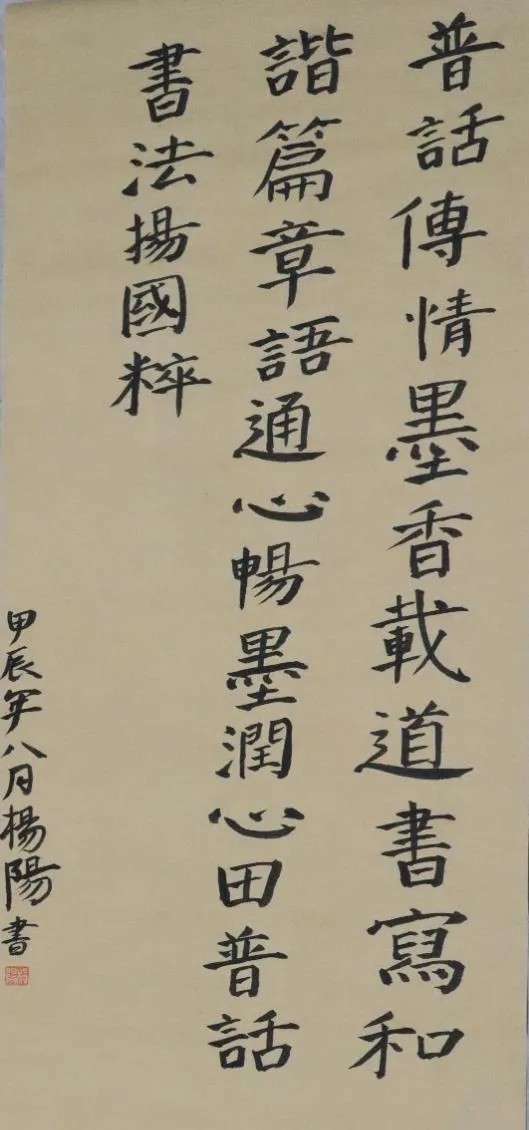 普話傳情墨香載道書寫和
諧篇章語通心暢墨潤心田普話
書法揚國粹
甲辰年八月楊陽書